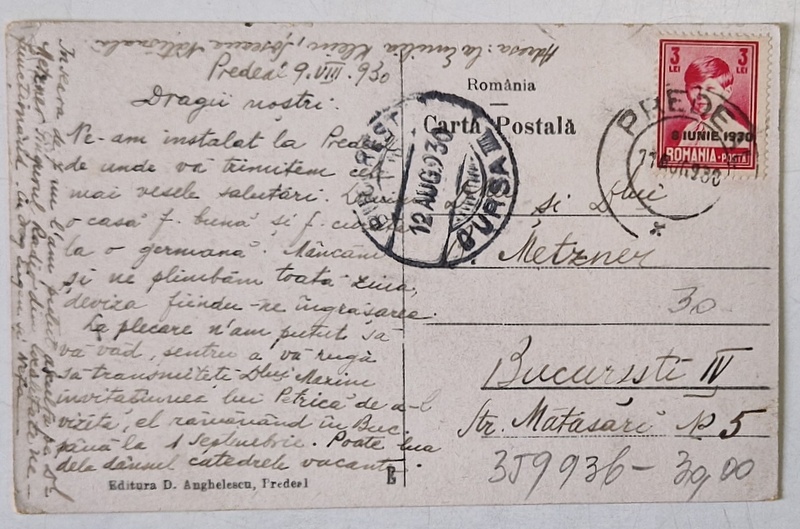 Adresa: la Emilia Klein, Șoseaua Națională
Predeal 9.VIII.930
Dragii noștri.
Ne-am instalat la Prede
de unde vă trimitem cele
mai vesele salutări.
o casă f. bună și f. cu
la o germană. Mâncăm
și ne plimbăm toată ziua,
deviza fiindu-ne îngrășarea.
La plecare n'am putut să
vă văd, pentru a vă ruga
să transmiteți Dlui Maxim
invitațiunea lui Petrică de a-l
vizita, el rămânând în Buc.
până la 1 Septembrie. Poate lua
dela dânsul catedrele vacante
din localitate ne-
Editura D. Anghelescu, Predeal
E
România
Carta Poștală
și Dlui
Metzner
30
București IV
Str. Mătăsari No 5
359936 - 30,00
BUCUREȘTI
12 AUG 930
CURSA III
PREDEAL
3 LEI
3 LEI
8 IUNIE 1930
ROMANIA - POSTA